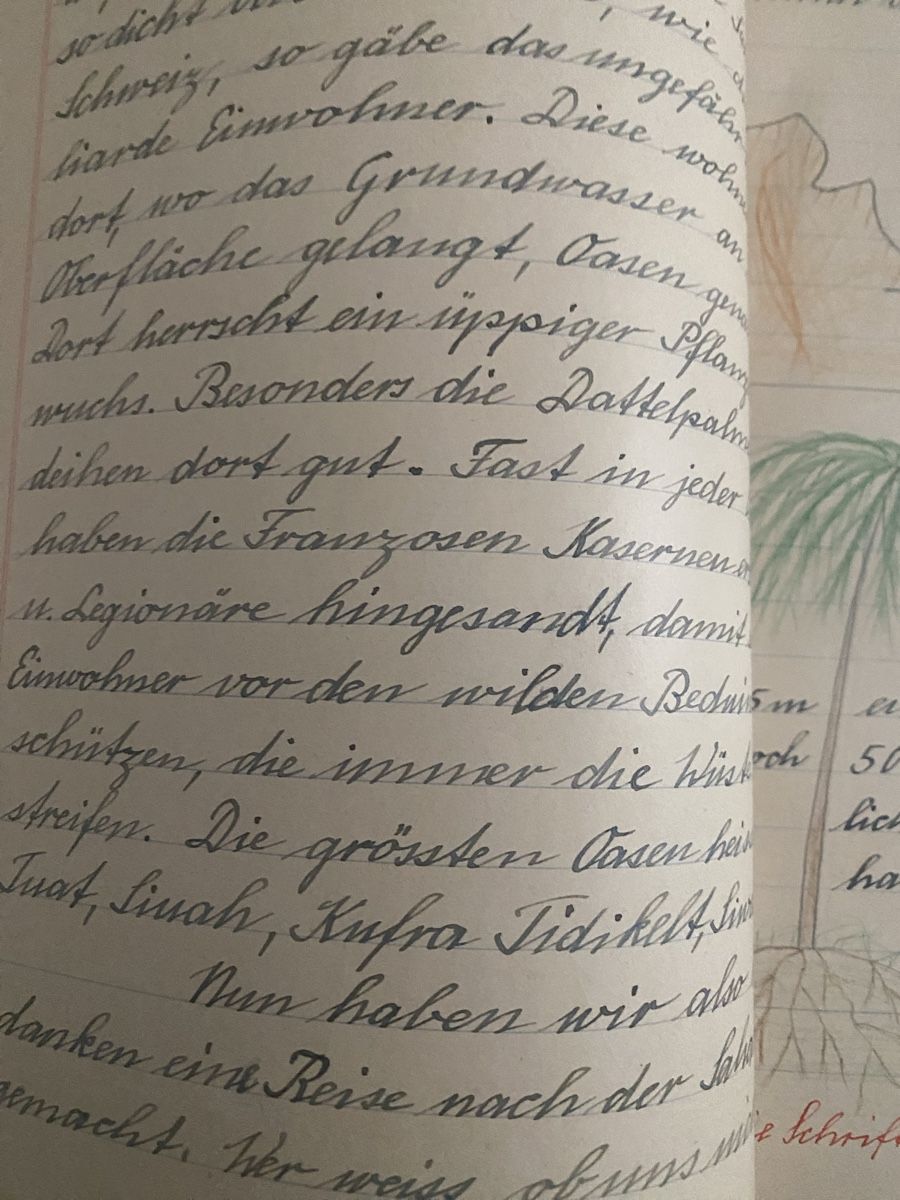 so dicht
wie
Schweiz, so gäbe das ungefähr
liarde Einwohner. Diese wohn
dort, wo das Grundwasser an
Oberfläche gelangt, Oasen gena
Dort herrscht ein üppiger Pflanz
wuchs. Besonders die Dattelpalm
deihen dort gut. Fast in jeder
haben die Franzosen Kasernen er
u. Legionäre hingesandt, damit
Einwohner vor den wilden Bedui
schützen, die immer die Wüste
streifen. Die grössten Oasen heis
Tuat, Siuah, Kufra Tidikelt, Siw
Nun haben wir also
danken eine Reise nach der Saha
gemacht. Wer weiss ob uns
5 m
och 50
lich
ha
e Schrift